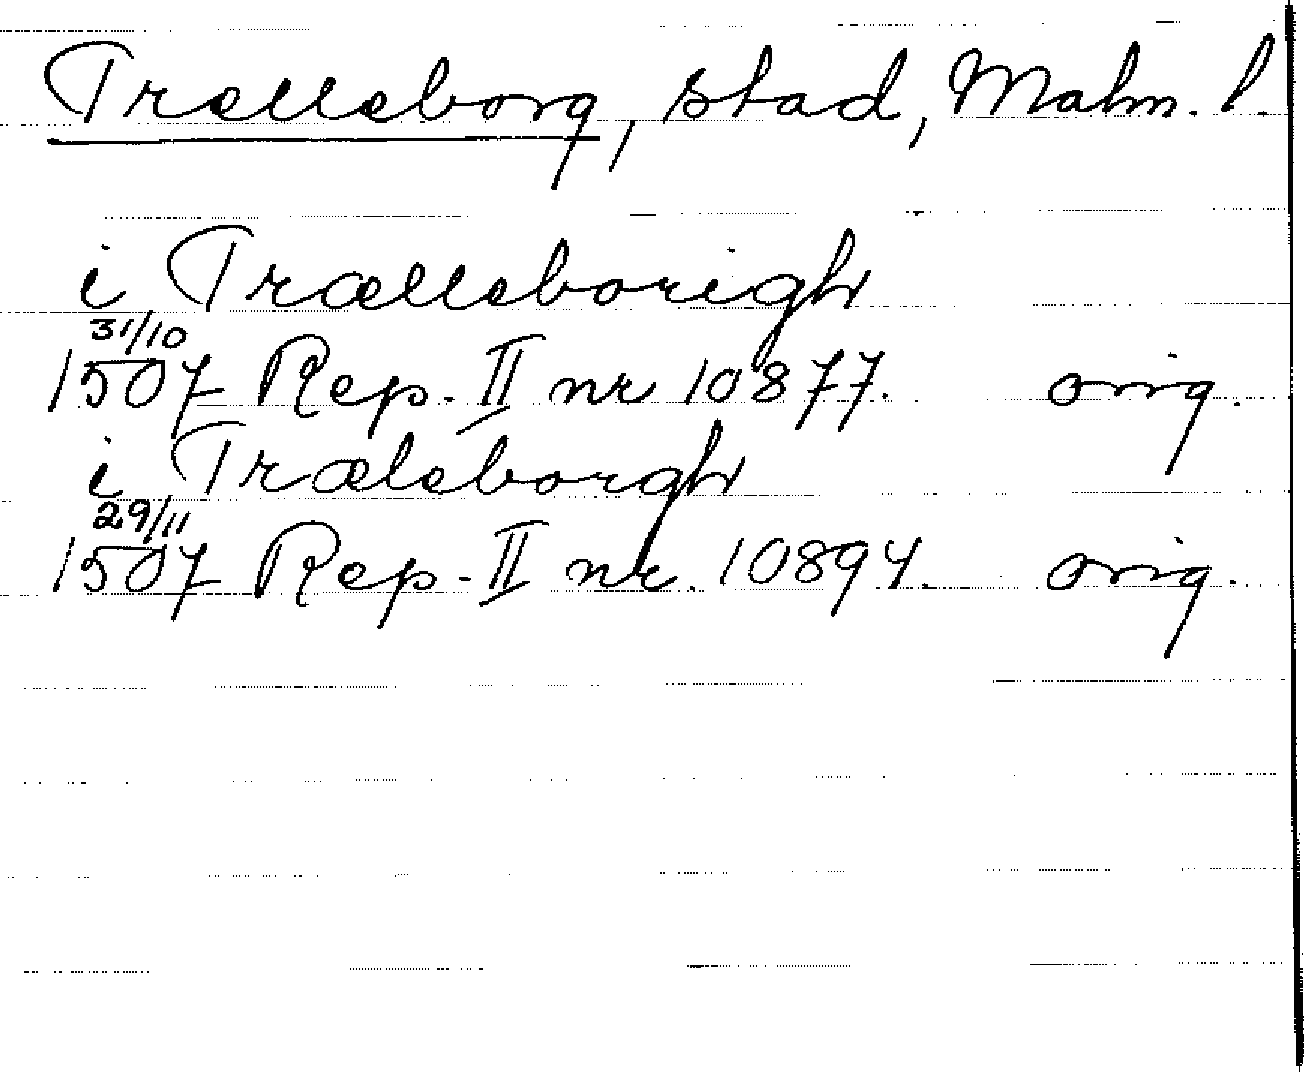 Trelleborg, stad, Malm. l.
i Trælleborigh
31/10
1507 Rep. II nr 10877. orig.
i Træleborgh
29/11
1507 Rep. II nr. 10894. orig.